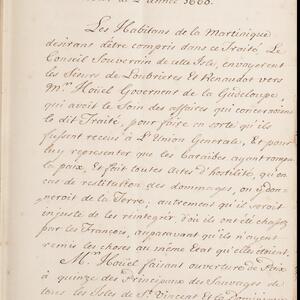 de L'année 1660.
Les Habitans de la Martinique
desirans d'être compris dans ce Traité Le
Conseil Souverain de cette Isle, envoyerent
les Sieurs de Loubrieres et Renaudot vers
Mr. Hoüel Gouvernent de la Guadeloupe
qui avoit le Soin des affaires qui concernoient
le dit Traité, pour faire en sorte qu'ils
fussent receus à L'Union Generale, Et pour
luy representer que les Caraibes ayant rompu
la paix, et fait toutes actes d'hostilité, qu'en
cas de restitution des dommages, on y don-
neroit de la Terre; autrement qu'il seroit
injuste de les reintegrer d'où ils ont été chassez
par les François, auparavant qu'ils n'ayent
remis les choses au même Etat qu'elles étoient.
Mr. Hoüel faisant ouverture de Paix
à quinze des Principaux des Sauvages de
toutes les Isles de St. Vincent et la Dominique